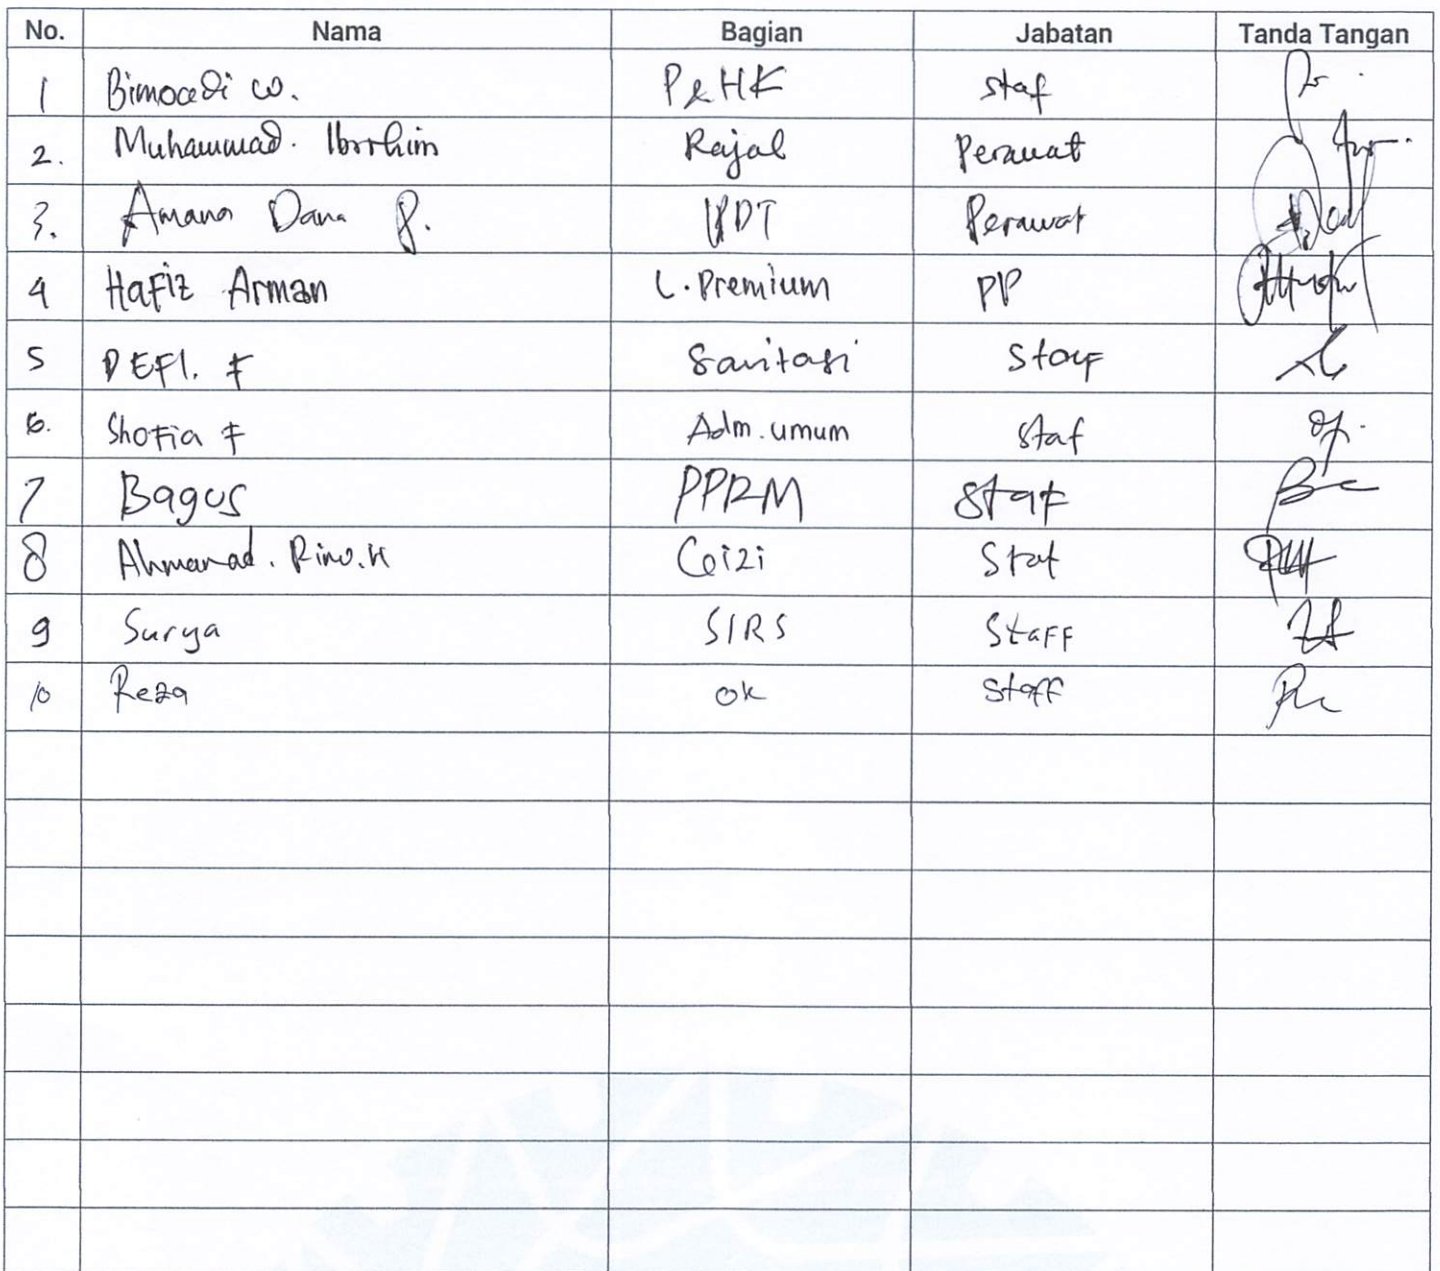 No. Nama Bagian Jabatan Tanda Tangan
1 P&HK staf
2. Muhammad. Ibrrhim Rajal Perawat
3. Amana Dana P. Perawat
4 Hafiz Arman L.Premium PP
5 DEFI. F Sanitasi Staf
6. Shofia F Adm.umum Staf
7 Bagus PPRM Staf
8 Ahmamad. Rino.H Gizi Staf
9 Surya SIRS Staff
10 Reza OK Staff